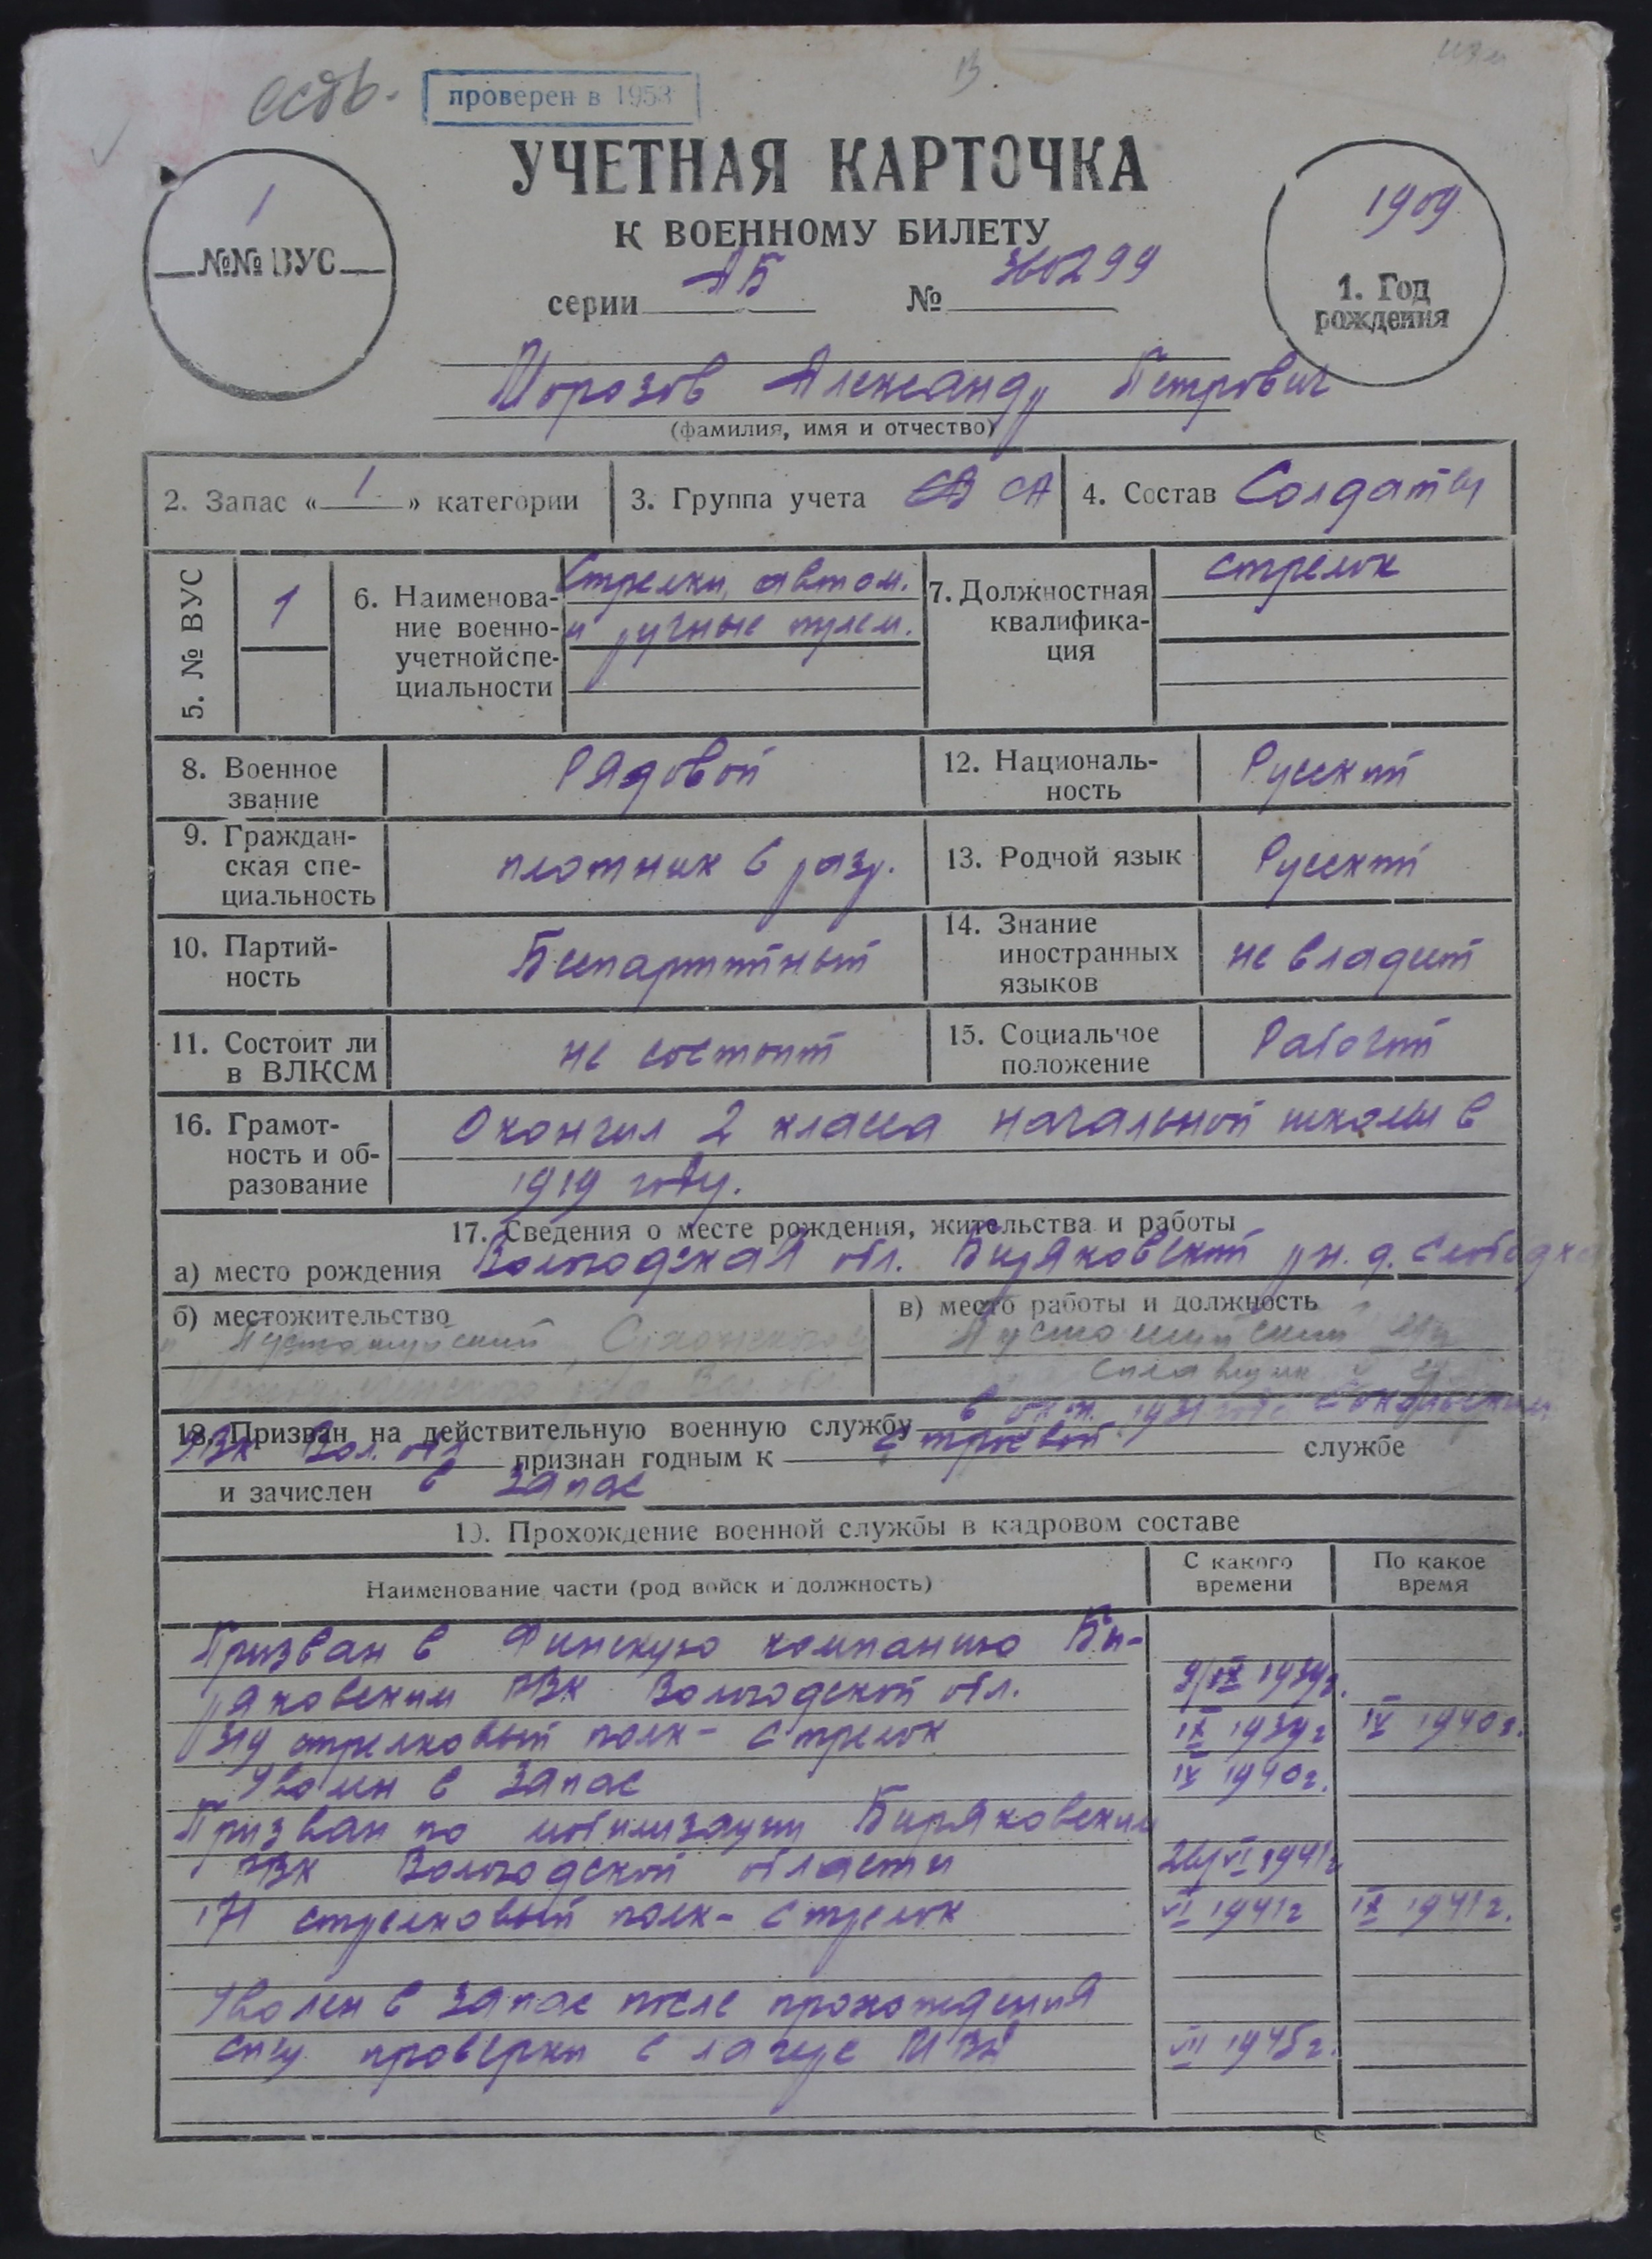 проверен в 1953
УЧЕТНАЯ КАРТОЧКА
К ВОЕННОМУ БИЛЕТУ
1
№№ ВУС
1909
1. Год
рождения
серии АБ № 360299
Морозов Александр Петрович
(фамилия, имя и отчество)
2. Запас « 1 » категории
3. Группа учета СА
4. Состав Солдаты
5. № ВУС
1
6. Наименова-
ние военно-
учетной спе-
циальности
Стрелки, автом.
и ручные пулем.
7. Должностная
квалифика-
ция
стрелок
8. Военное
звание
Рядовой
12. Националь-
ность
Русский
9. Граждан-
ская спе-
циальность
плотник 6 разр.
13. Родной язык
Русский
10. Партий-
ность
Беспартийный
14. Знание
иностранных
языков
не владеет
11. Состоит ли
в ВЛКСМ
не состоит
15. Социальное
положение
Рабочий
16. Грамот-
ность и об-
разование
Окончил 2 класса начальной школы в
1919 году.
17. Сведения о месте рождения, жительства и работы
а) место рождения Вологодская обл. Биряковский рн. д. Слободка
б) местожительство
в) место работы и должность
18. Призван на действительную военную службу в 1931 году Сокольским
РВК Вол. обл. признан годным к строевой службе
и зачислен в запас
19. Прохождение военной службы в кадровом составе
Наименование части (род войск и должность)
С какого
времени
По какое
время
Призван в Финскую компанию Би-
ряковским РВК Вологодской обл. 9/IX 1939г.
319 стрелковый полк - стрелок IX 1939г IV 1940г.
Уволен в запас IV 1940г.
Призван по мобилизации Биряковским
РВК Вологодской области 26/VI 1941г
171 стрелковый полк - стрелок VI 1941г IX 1941г.
Уволен в запас после прохождения
спец проверки в лагере VII 1945г.